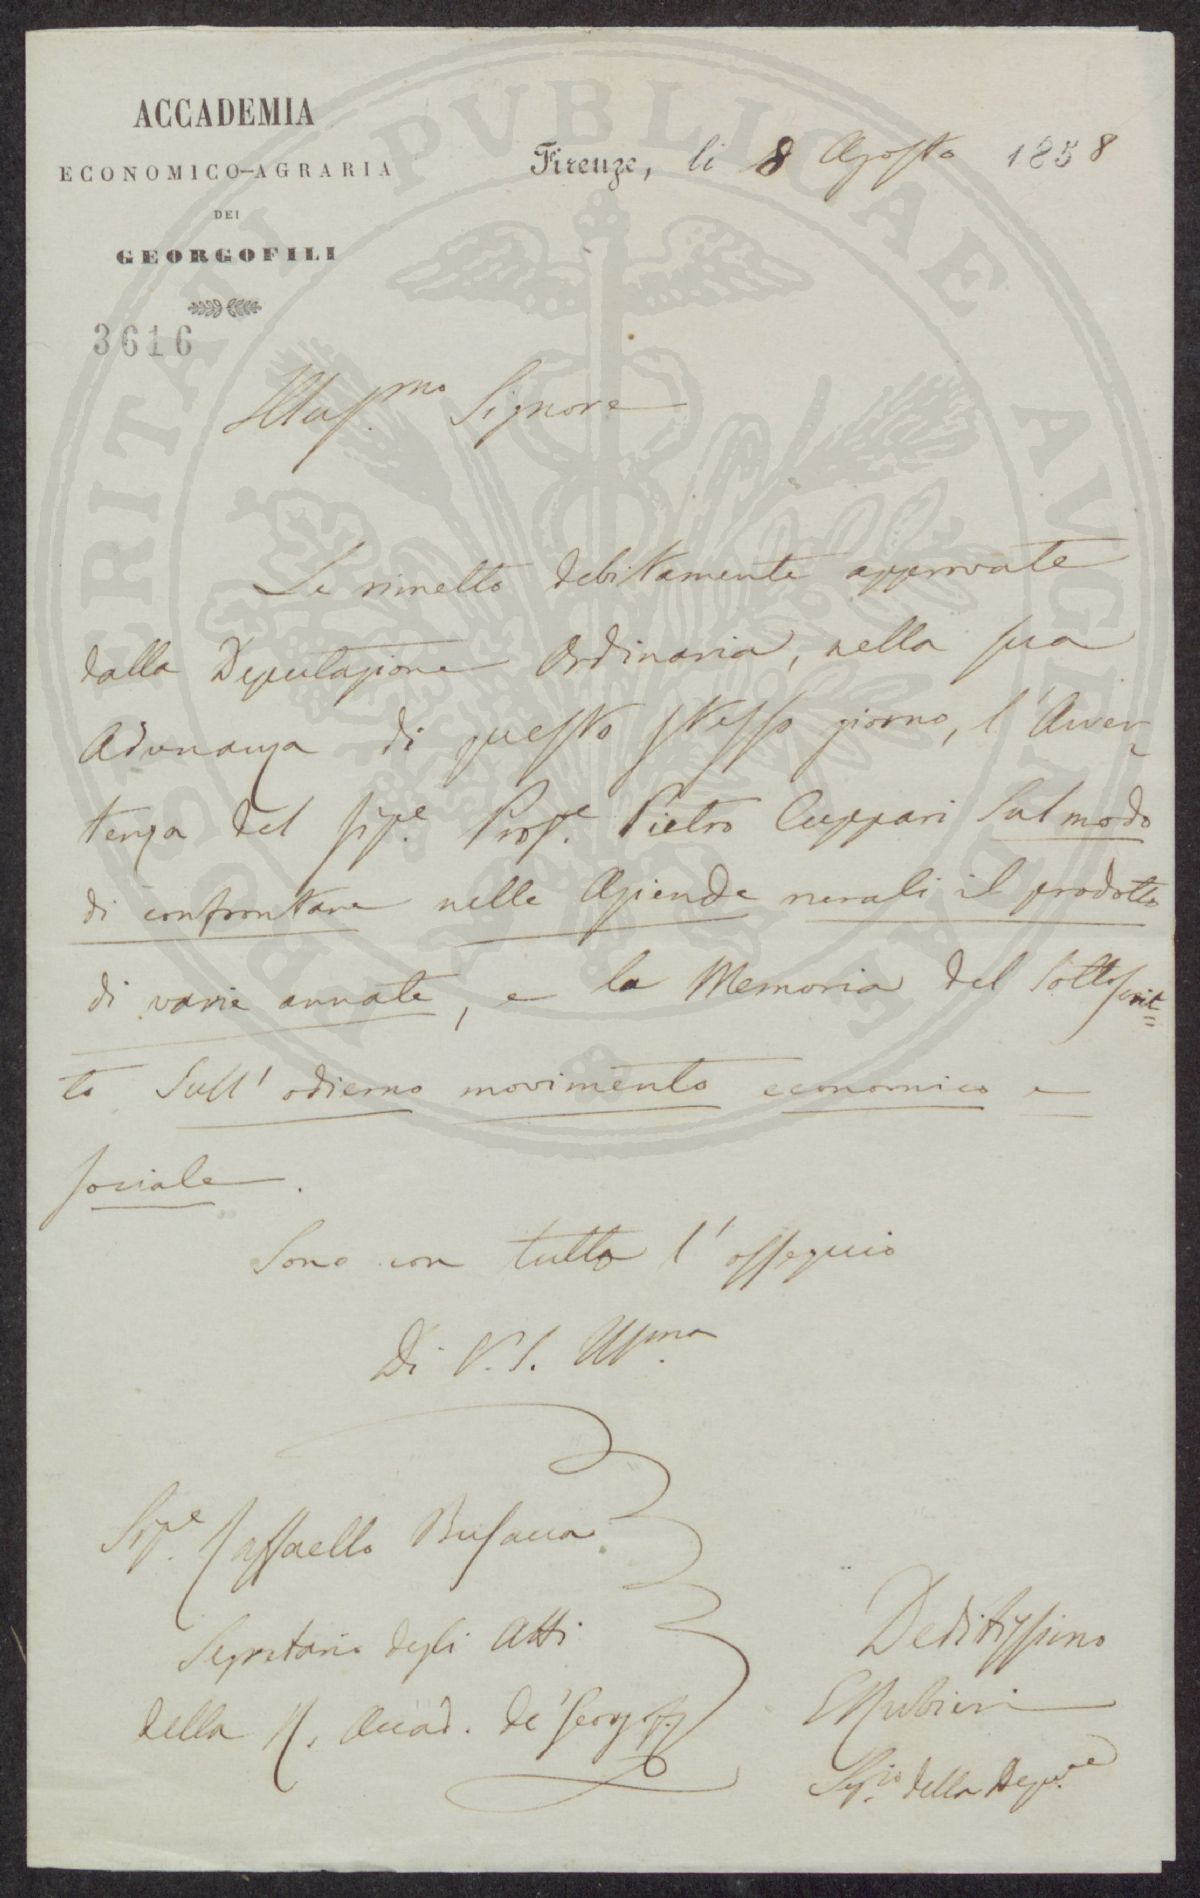 ACCADEMIA
ECONOMICO-AGRARIA
DEI
GEORGOFILI
Firenze, li 8 Agosto 1858
3616
Illus.mo Signore
Le rimetto debitamente approvate
dalla Deputazione Ordinaria, nella sua
Adunanza di questo stesso giorno, l'Avver-
tenza del Sig.e Prof.e Pietro Cuppari Sul modo
di confrontare nelle Aziende rurali il prodotto
di varie annate, e la Memoria del Sottoscrit=
to Sull'odierno movimento economico e
sociale.
Sono con tutto l'ossequio
Di V.S. Ill.ma
Sig.e Raffaello Busacca
Segretario degli Atti
della R. Accad. de' Georgof.
Deditissimo
E Rubieri
Seg.rio della Depu.ne
PROSPERITATI PVBLICAE AVGENDAE